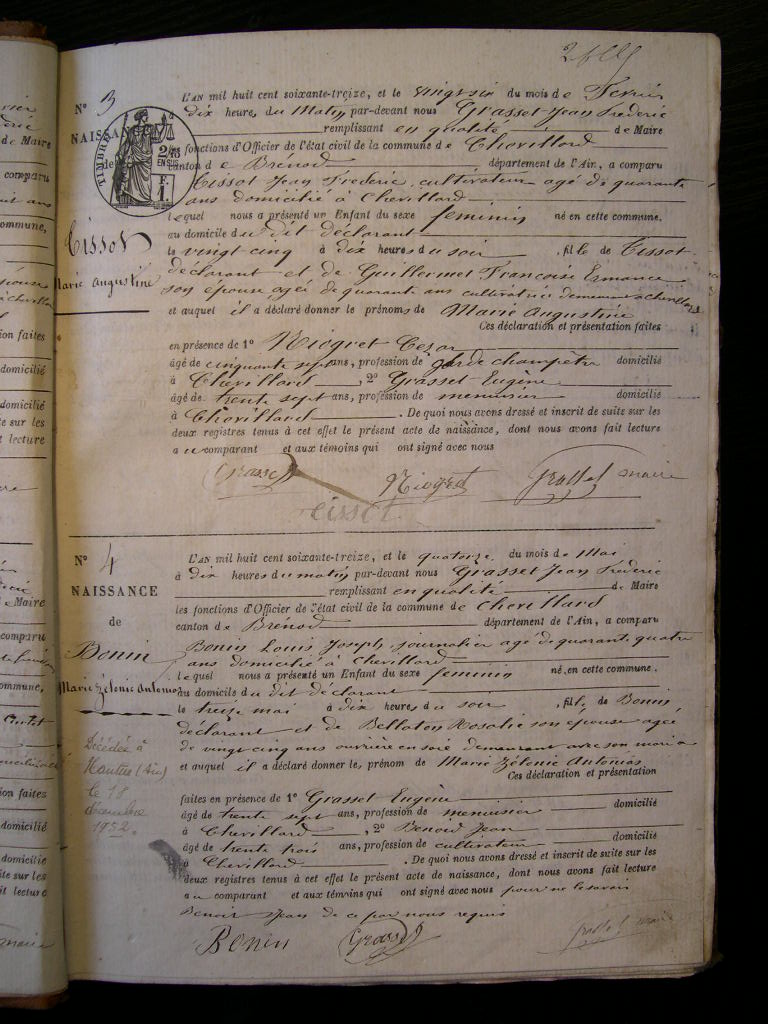 N° 3
NAISSA
de
TIMBRE
2/10
EN SUS
F.
1.
Tissot
Marie Augustine
L'AN mil huit cent soixante-treize, et le vingt six du mois de Février
dix heures du Matin par-devant nous Grasset Jean Frédéric
remplissant en qualité de Maire
les fonctions d'Officier de l'état civil de la commune de Chevillard
canton de Brénod département de l'Ain, a comparu
Tissot Jean Frederic, cultivateur agé de quarante
ans domicilié à Chevillard
lequel nous a présenté un Enfant du sexe feminin né en cette commune,
au domicile du dit déclarant
le vingt cinq à dix heures du soir, fille de Tissot
déclarant et de Guillermet Françoise Ermance
son épouse agée de quarante ans cultivatrice demeurant à chevillard
et auquel il a déclaré donner le prénoms de Marie Augustine
Ces déclaration et présentation faites
en présence de 1° Niogret Cesar
âgé de cinquante sept ans, profession de garde champetre domicilié
à Chevillard, 2° Grasset Eugène
âgé de trente sept ans, profession de menuisier domicilié
à Chevillard. De quoi nous avons dressé et inscrit de suite sur les
deux registres tenus à cet effet le présent acte de naissance, dont nous avons fait lecture
au comparant et aux témoins qui ont signé avec nous
Grasset Niogret Grasset maire
Tissot
N° 4
NAISSANCE
de
Bonin
Marie Zélonie Antonia
Décédée à
Nantua (Ain)
le 18
décembre
1952.
L'AN mil huit cent soixante-treize, et le quatorze du mois de Mai
à dix heures du matin par-devant nous Grasset Jean Frederic
remplissant en qualité de Maire
les fonctions d'Officier de l'état civil de la commune de Chevillard
canton de Brénod département de l'Ain, a comparu
Bonin Louis Joseph, journalier agé de quarante quatre
ans domicilié à Chevillard
lequel nous a présenté un Enfant du sexe feminin né, en cette commune.
au domicile du dit déclarant
le treize mai à dix heures du soir, fille de Bonin
déclarant et de Belloton Rosalie son épouse agée
de vingt cinq ans ouvrière en soie demeurant avec son mari
et auquel il a déclaré donner le, prénom de Marie Zélonie Antonia
Ces déclaration et présentation
faites en présence de 1° Grasset Eugène
âgé de trente sept ans, profession de menuisier domicilié
à Chevillard, 2° Benoit Jean
âgé de trente trois ans, profession de cultivateur domicilié
à Chevillard. De quoi nous avons dressé et inscrit de suite sur les
deux registres tenus à cet effet le présent acte de naissance, dont nous avons fait lecture
au comparant et aux témoins qui ont signé avec nous pour ne le savoir
Benoit Jean de ce par nous requis
Bonin Grasset Grasset maire